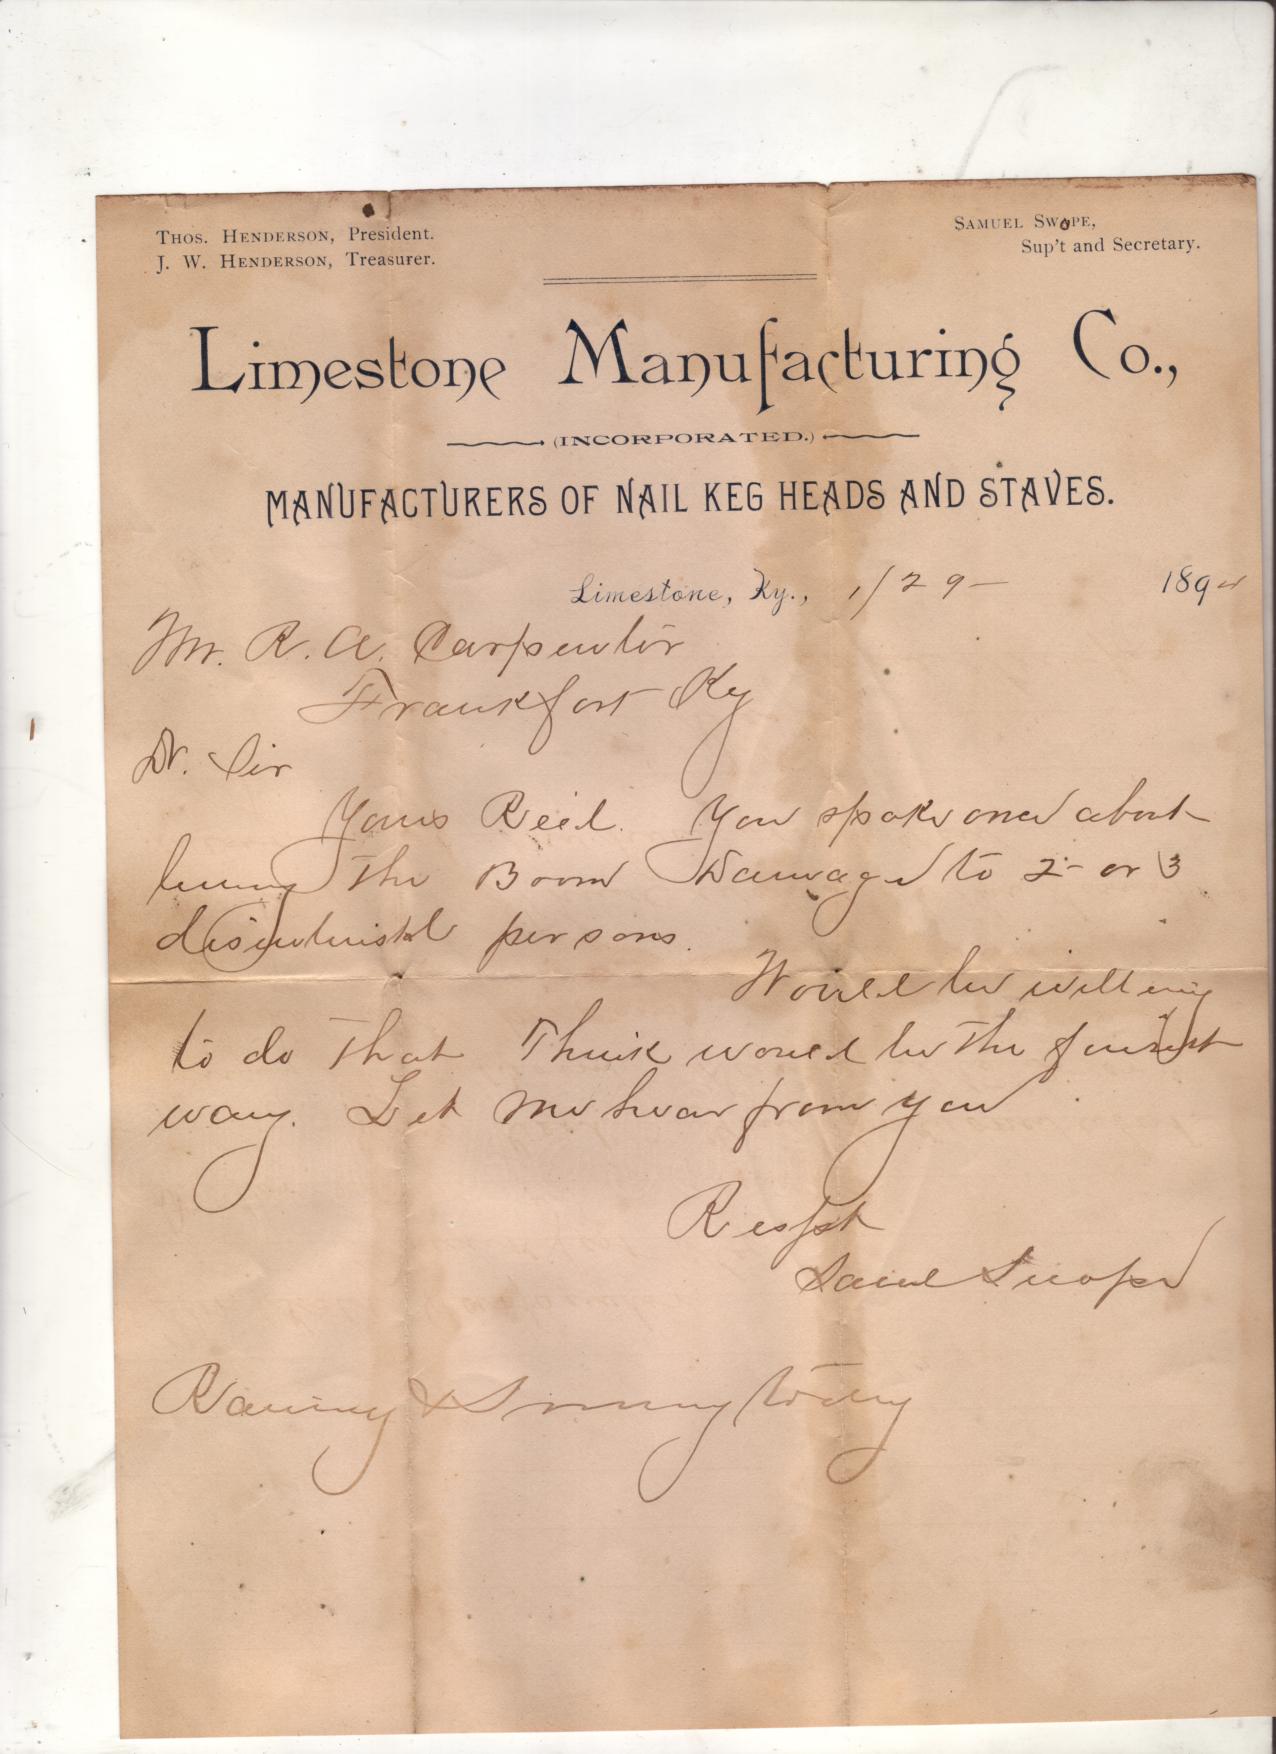 THOS. HENDERSON, President.
J. W. HENDERSON, Treasurer.
SAMUEL SWOPE,
Sup't and Secretary.
Limestone Manufacturing Co.,
(INCORPORATED.)
MANUFACTURERS OF NAIL KEG HEADS AND STAVES.
Limestone, Ky., 1/29- 189
Mr. R. A. Carpenter
Frankfort Ky
Dr. Sir
Yours Rec'd. You spoke once about
the Boom Damage to 2- or 3
persons.
Would be willing
to do that Think would be the
way. Let me hear from you
Respt
Saml Swope
Raining &